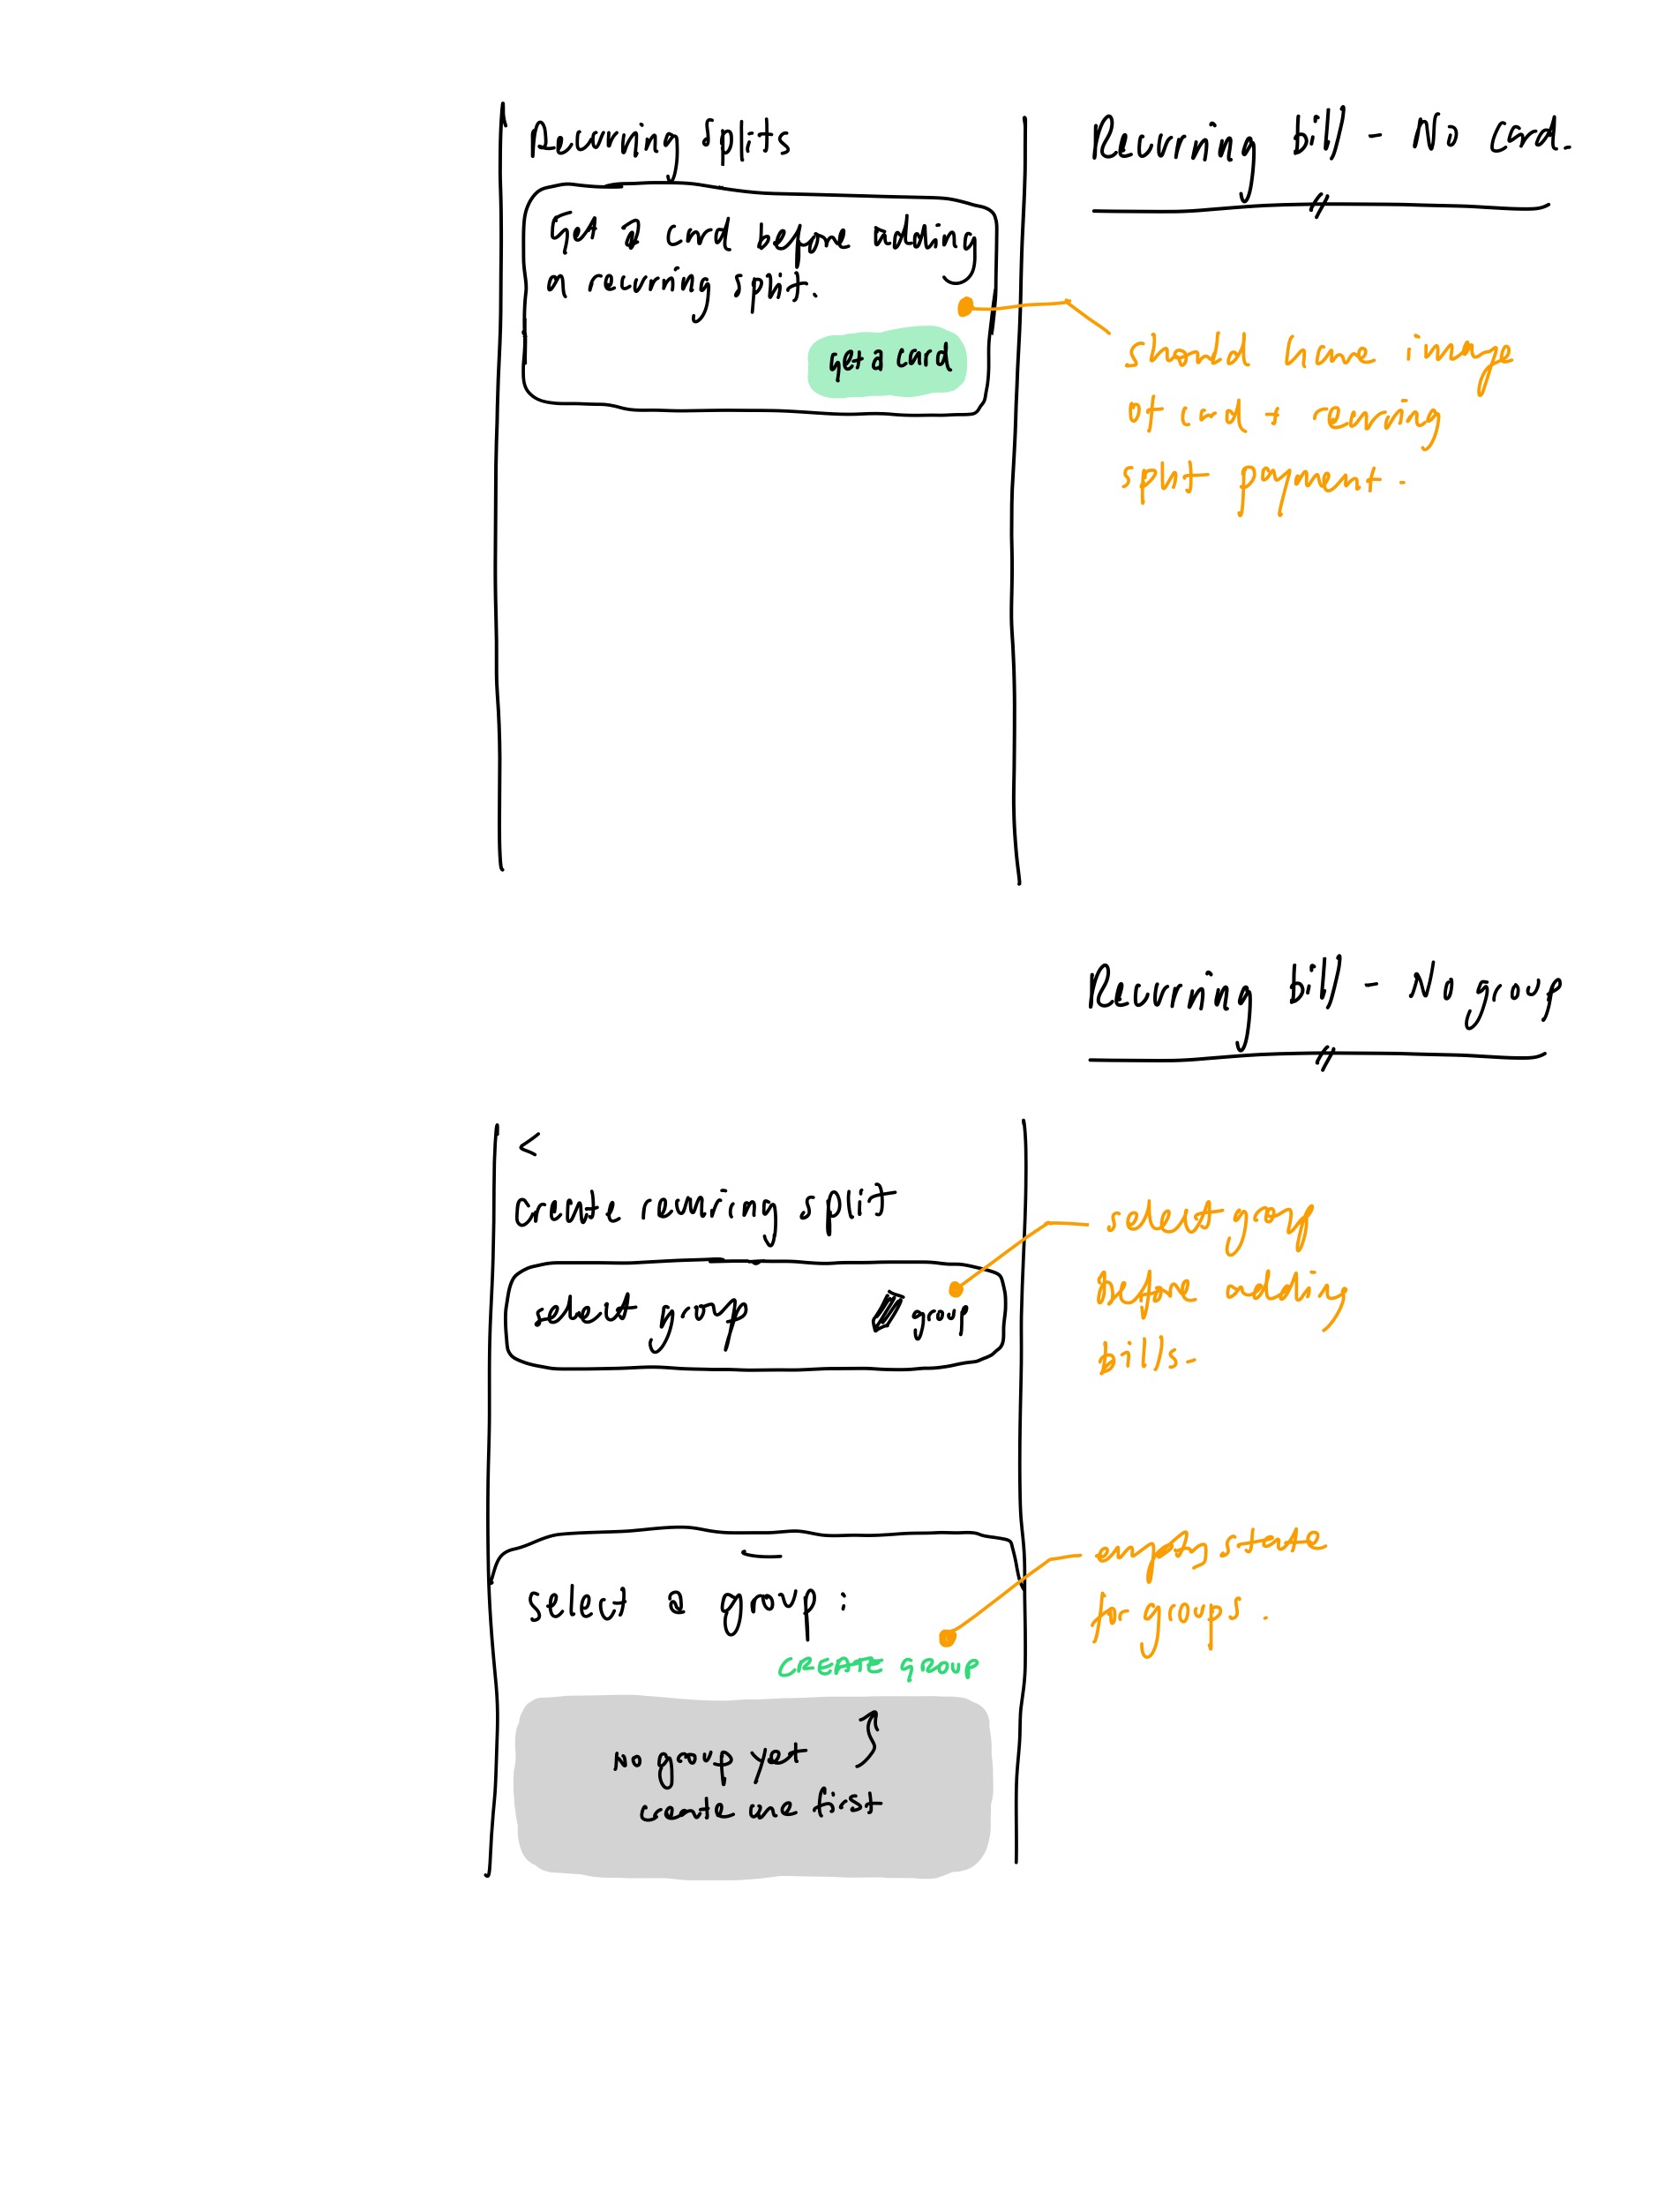 Recurring splits
Get a card before adding
a recurring split.
get a card
Recurring bill - No card.
should have image
of card + recurring
split payment.
Recurring bill - No group
<
create recurring split
select group
group
select group
before adding
bills.
select a group :
CREATE group
No group yet
create one first
empty state
for groups.